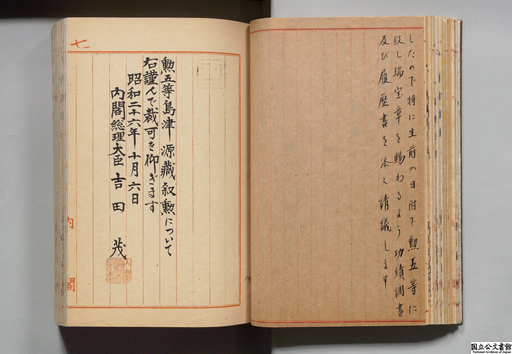 したので特に生前の日附で勲五等に
叙し瑞宝章を賜わるよう功績調書
及び履歴書を添え請議します
七
勲五等島津源藏叙勲について
右謹んで裁可を仰ぎます
昭和二十六年十月六日
内閣総理大臣吉田茂
内閣
国立公文書館
National Archives of Japan